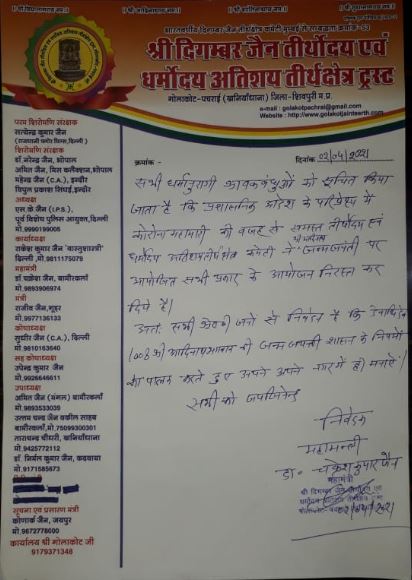 भारतवर्षीय दिगम्बर जैन तीर्थक्षेत्र कमेटी मुम्बई
श्री दिगम्बर जैन तीर्थोदय एवं
धर्मोदय अतिशय तीर्थक्षेत्र ट्रस्ट
गोलाकोट-पचराई (खनियाँधाना) जिला-शिवपुरी म.प्र.
e-mail : golakotpachrai@gmail.com
Website : http://www.golakotjainteerth.com
परम शिरोमणि संरक्षक
सत्येन्द्र कुमार जैन
शिरोमणि संरक्षक
डॉ. नरेन्द्र जैन, भोपाल
महेन्द्र जैन (C.A.), इन्दौर
विपुल प्रकाश सिंघई, इन्दौर
अध्यक्ष
एस.के जैन (I.P.S.),
पूर्व विशेष पुलिस आयुक्त, दिल्ली
मो.9990199005
कार्याध्यक्ष
राकेश कुमार जैन 'वास्तुशास्त्री'
दिल्ली, मो.9811175079
महामंत्री
डॉ. चक्रेश जैन, बामौरकलाँ
मो.9893906974
मंत्री
राजीव जैन,
मो.9977136133
कोषाध्यक्ष
सुधीर जैन (C.A.), दिल्ली
मो.9810163640
सह कोषाध्यक्ष
उपेन्द्र कुमार जैन
मो.9926646611
उपाध्यक्ष
अमित जैन बामौरकलाँ
मो.9893533039
उत्तम चन्द जैन वकील साहब
बामौरकलाँ, मो.75099300301
ताराचन्द चौधरी, खनियाँधाना
मो.9425772112
डॉ. निर्मल कुमार जैन,
मो.9171585673
सूचना एवं प्रसारण मंत्री
कोणार्क जैन, जयपुर
मो.9672778600
कार्यालय श्री गोलाकोट जी
9179371348
क्रमांक -
दिनांक 02/04/2021
सभी धर्मानुरागी श्रावकबंधुओं को सूचित किया
जाता है कि प्रशासनिक आदेश के परिप्रेक्ष्य में
कोरोना महामारी की वजह से समस्त तीर्थोदय एवं
धर्मोदय अतिशय तीर्थक्षेत्र कमेटी ने जन्मजयंती पर
आयोजित सभी प्रकार के आयोजन निरस्त कर
दिये हैं।
अतः सभी श्रेष्ठी जनों से निवेदन है कि
1008 श्री आदिनाथ भगवान की जन्म जयन्ती शासन के नियमों
का पालन करते हुए अपने अपने घर में ही मनायें।
सभी को जयजिनेन्द्र
निवेदक
महामन्त्री
डा० चक्रेश कुमार जैन
महामंत्री